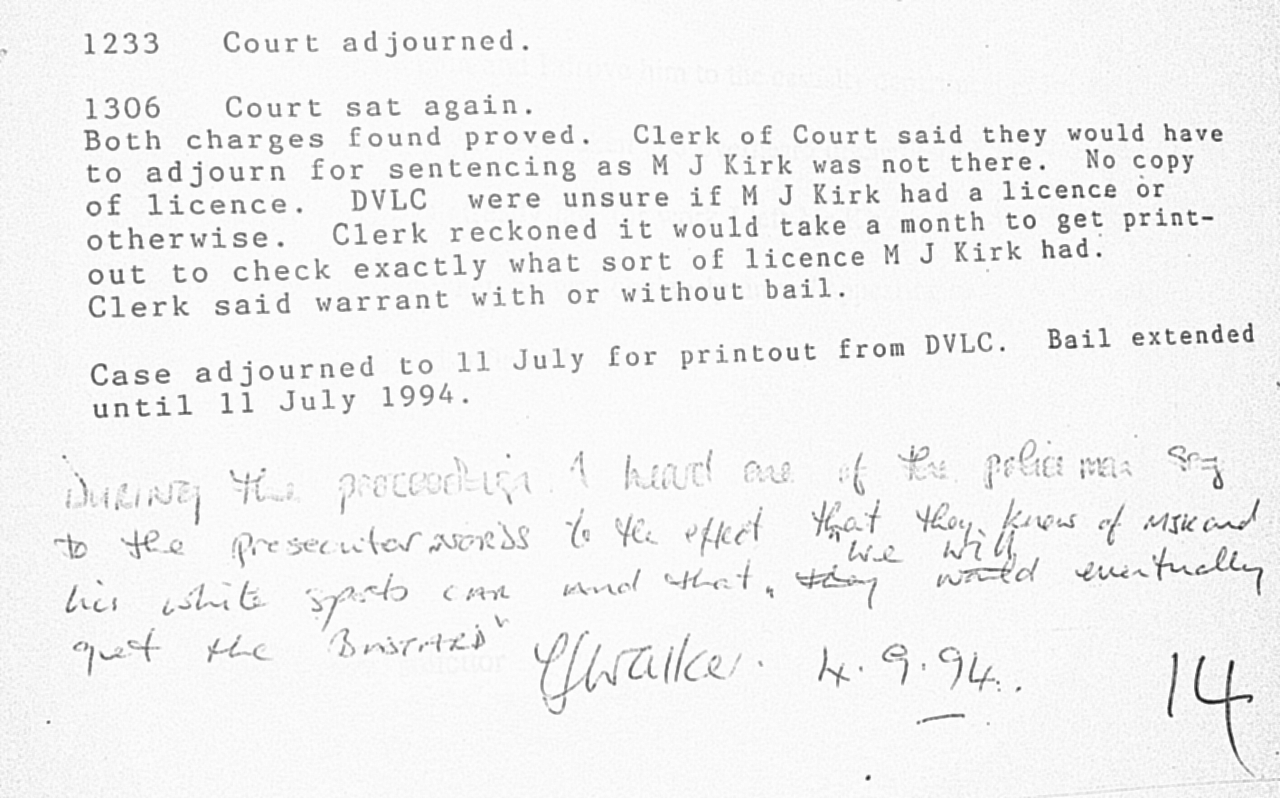 1233 Court adjourned.
1306 Court sat again.
Both charges found proved. Clerk of Court said they would have
to adjourn for sentencing as M J Kirk was not there. No copy
of licence. DVLC were unsure if M J Kirk had a licence or
otherwise. Clerk reckoned it would take a month to get print-
out to check exactly what sort of licence M J Kirk had.
Clerk said warrant with or without bail.
Case adjourned to 11 July for printout from DVLC. Bail extended
until 11 July 1994.
During the proceedings I heard one of the police men say
to the prosecutor words to the effect that they knew of MJK and
we will
his white sports car and that, they would eventually
get the "BASTARD" Walker. 4.9.94.
14